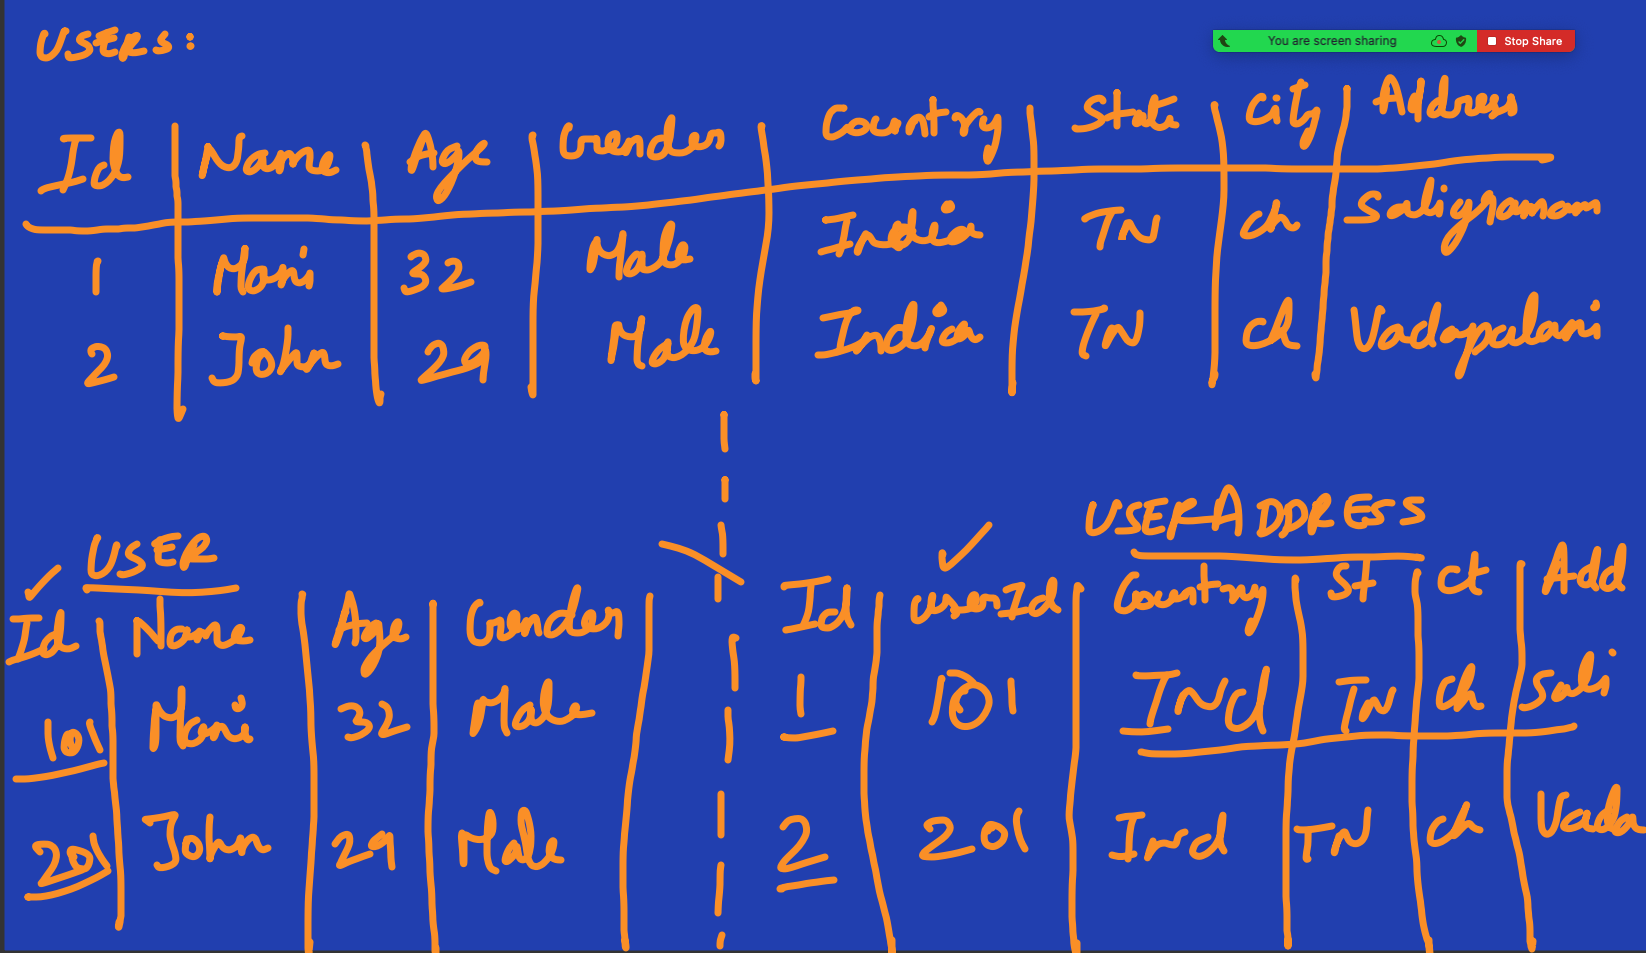 USERS:
You are screen sharing Stop Share
Id Name Age Gender Country State City Address
1 Mani 32 Male India TN ch Saligramam
2 John 29 Male India TN ch Vadapalani
USER
USERADDRESS
Id Name Age Gender
101 Mani 32 Male
201 John 29 Male
Id userId Country St ct Add
1 101 INd TN ch Sali
2 201 Ind TN ch Vada